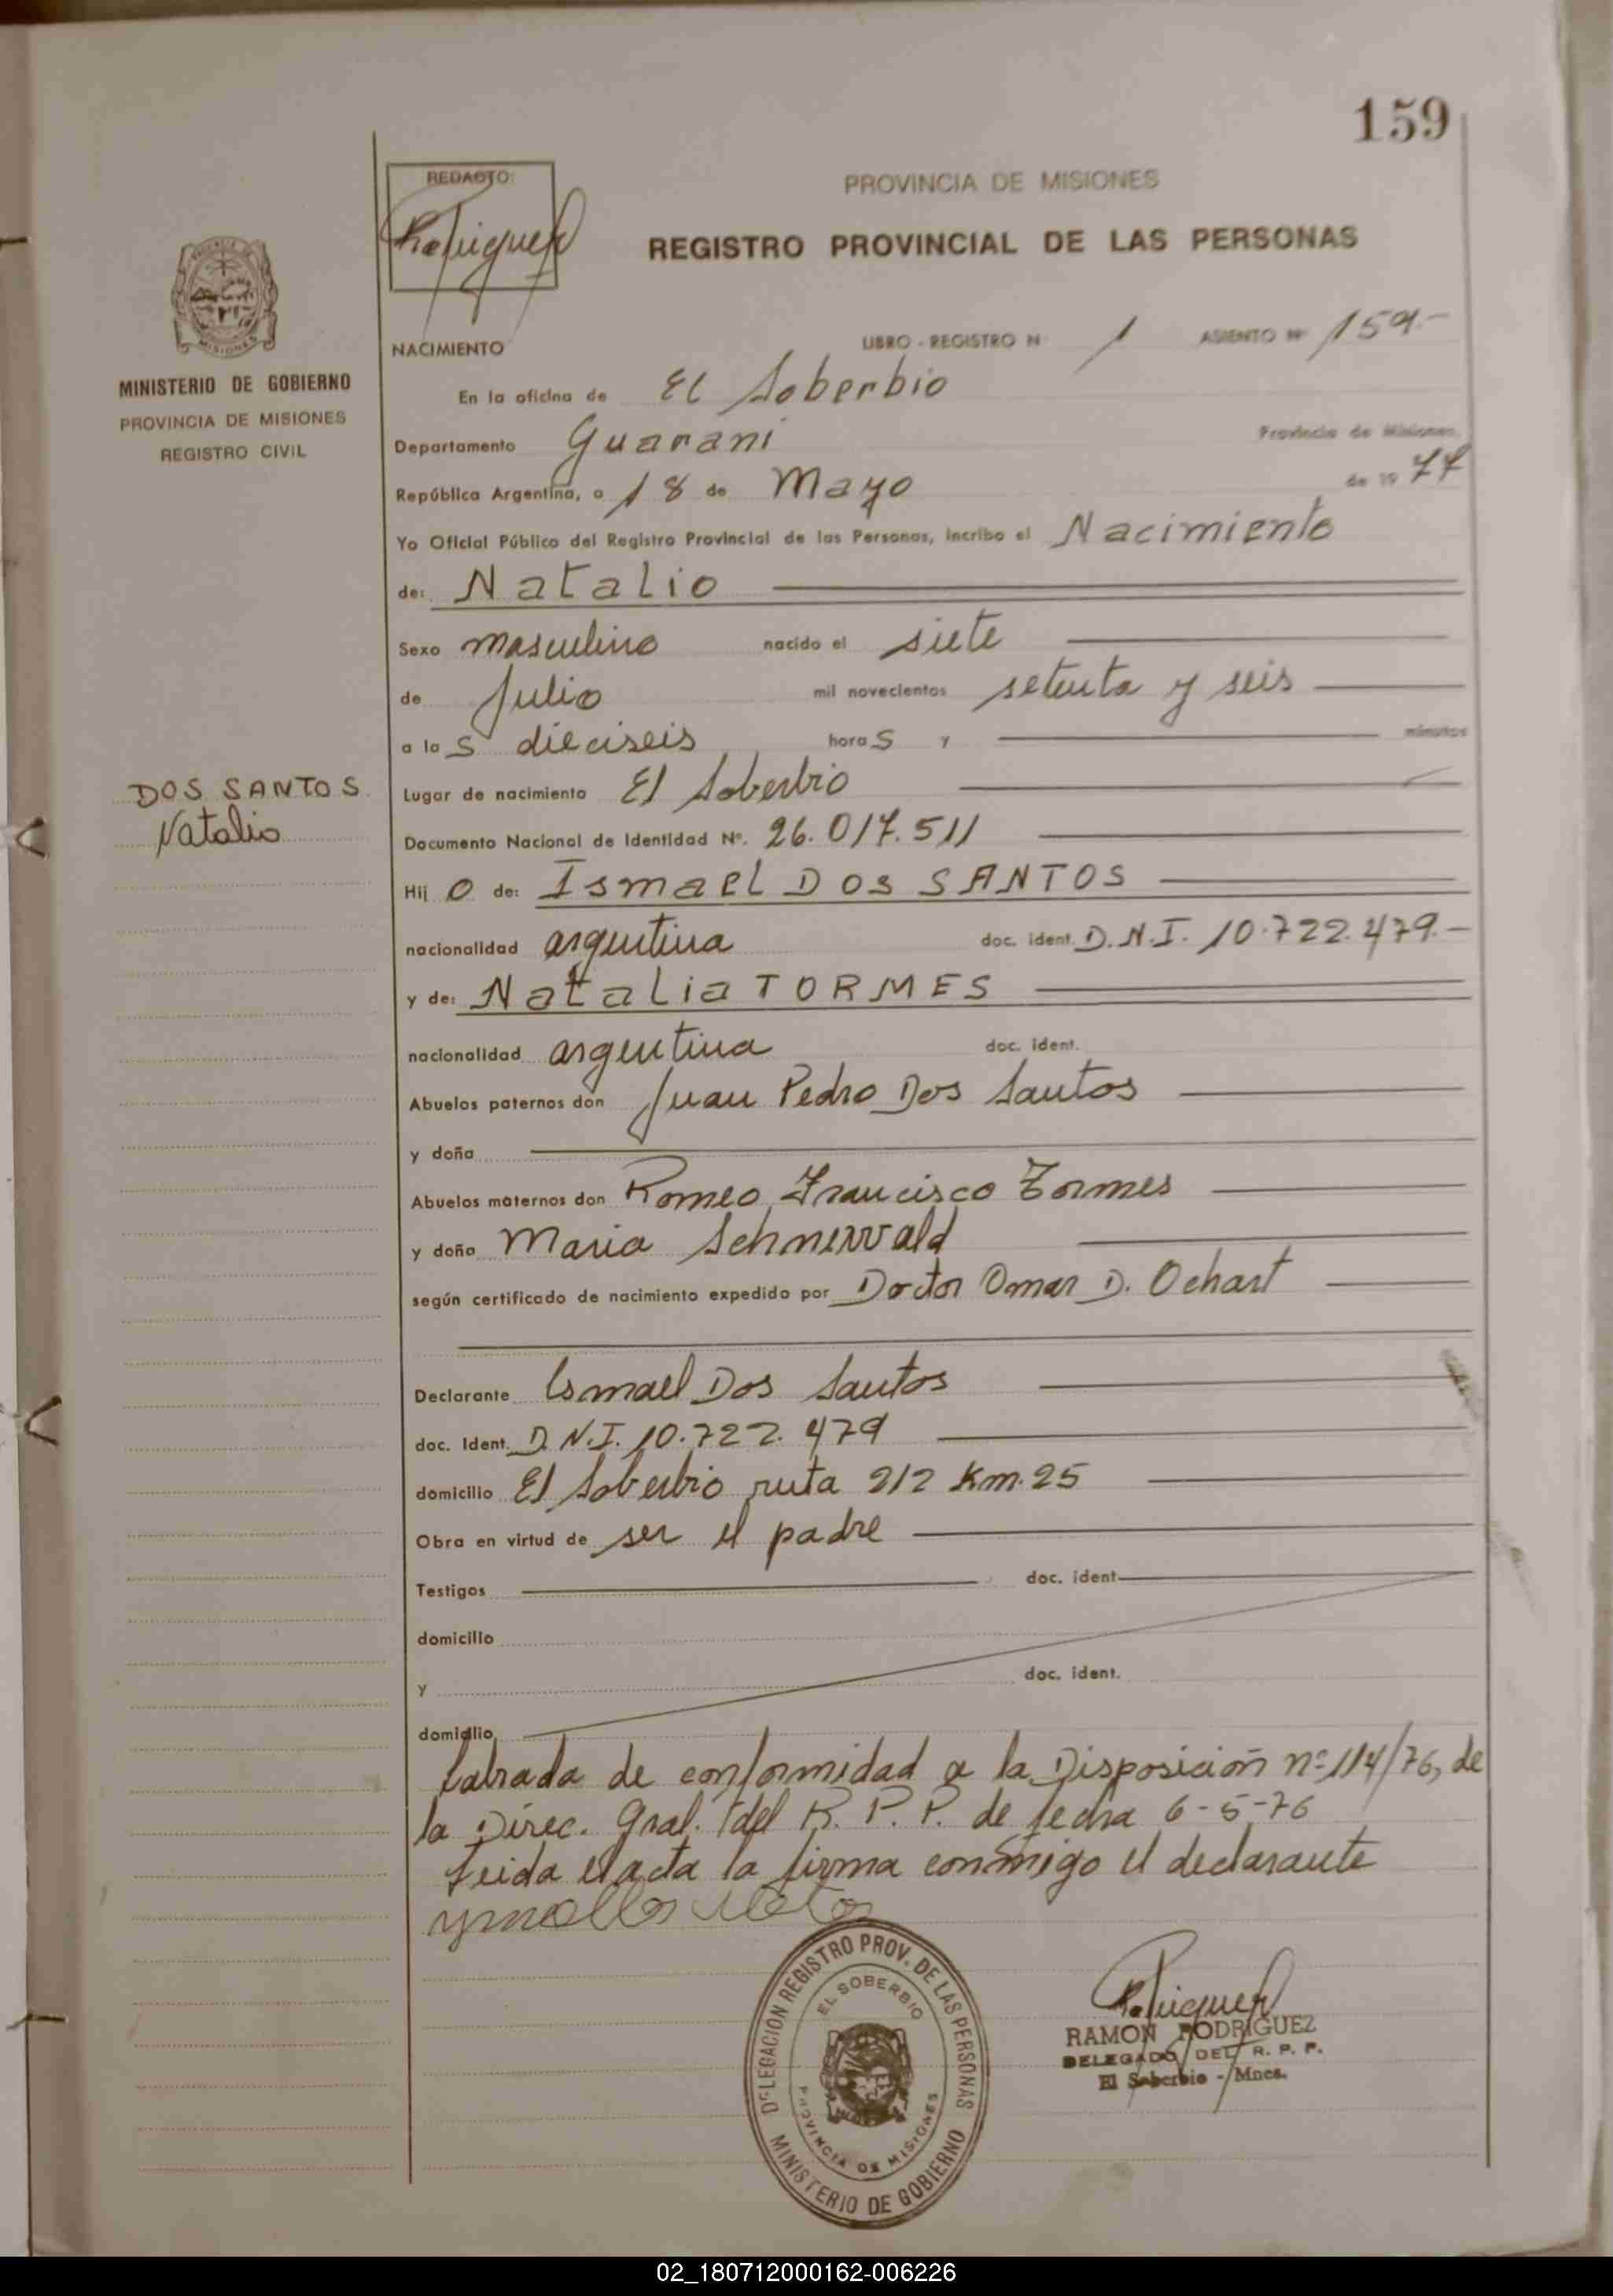 159
REDACTO:
PROVINCIA DE MISIONES
REGISTRO PROVINCIAL DE LAS PERSONAS
MISIONES
MINISTERIO DE GOBIERNO
PROVINCIA DE MISIONES
REGISTRO CIVIL
NACIMIENTO LIBRO - REGISTRO N 1 ASIENTO Nº 159.-
En la oficina de El Soberbio
Departamento Guarani Provincia de Misiones,
República Argentina, a 18 de Mayo de 19 77
Yo Oficial Público del Registro Provincial de las Personas, incribo el Nacimiento
de: Natalio
Sexo masculino nacido el siete
de Julio mil novecientos setenta y seis
a las dieciseis horas y minutos
DOS SANTOS
Natalio
Lugar de nacimiento El Soberbio
Documento Nacional de Identidad Nº. 26.017.511
Hijo de: Ismael DOS SANTOS
nacionalidad argentina doc. ident. D.N.I. 10.722.479.-
y de: Natalia TORMES
nacionalidad argentina doc. ident.
Abuelos paternos don Juan Pedro Dos Santos
y doña
Abuelos maternos don Romeo Francisco Tormes
y doña Maria
según certificado de nacimiento expedido por Doctor Omar D. Ochart
Declarante Ismael Dos Santos
doc. Ident. D.N.I. 10.722.479
domicilio El Soberbio ruta 212 Km. 25
Obra en virtud de ser el padre
Testigos doc. ident
domicilio
y doc. ident.
domicilio
Labrada de conformidad a la Disposición nº 114/76, de
la Direc. Gral. del R.P.P. de fecha 6-5-76
Leida el acta la firma conmigo el declarante
DELEGACION REGISTRO PROV. DE LAS PERSONAS
EL SOBERBIO
PROVINCIA DE MISIONES
MINISTERIO DE GOBIERNO
RAMON RODRIGUEZ
DELEGADO DEL R. P. P.
El Soberbio - Mnes.
02_180712000162-006226